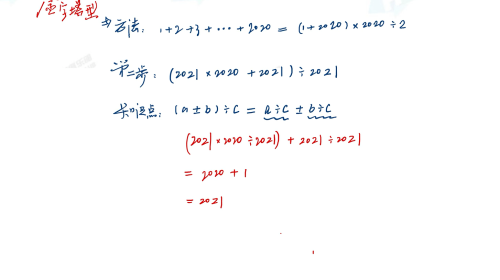 金字塔型
⇒ 方法: 1+2+3+…+2020 = (1+2020)×2020÷2
第二步: (2021×2020+2021)÷2021
知识点: (a±b)÷c = a÷c ± b÷c
(2021×2020÷2021) + 2021÷2021
= 2020+1
= 2021